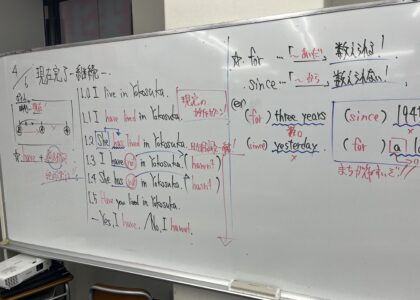 4/6 現在完了 ー継続ー
L.0 I live in Yokosuka.
L.1 I have lived in Yokosuka.
L.2 She has lived in Yokosuka.
L.3 I have not lived in Yokosuka. (haven't)
L.4 She has not lived in Yokosuka. (hasn't)
L.5 Have you lived in Yokosuka.
- Yes, I have. / No, I haven't.
☆ have +
現在の
☆ for … 「〜あいだ」 数えられる!
since … 「〜から」 数えられない!
(ex)
(for) three years
(since) yesterday
(since) 199
(for) a
まちがえやすいぞ!!